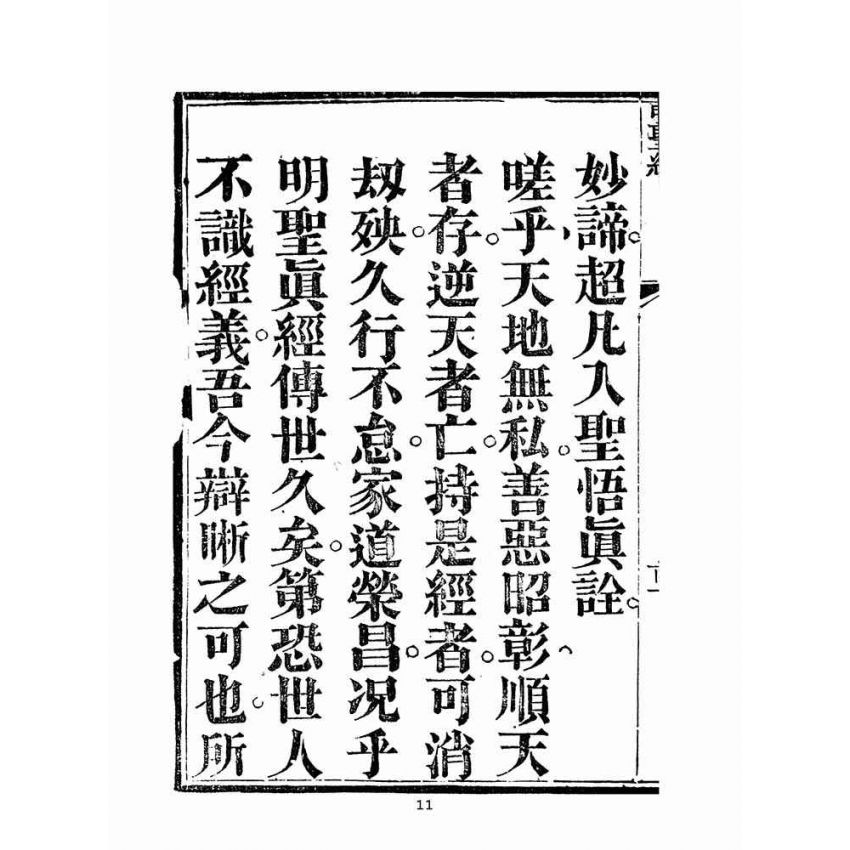 妙諦。超凡入聖。悟眞詮。
嗟乎。天地無私。善惡昭彰。順天
者存。逆天者亡。持是經者。可消
刼殃。久行不怠。家道榮昌。况乎
明聖眞經。傳世久矣。第恐世人
不識經義。吾今辯晰之可也。所
十一
11